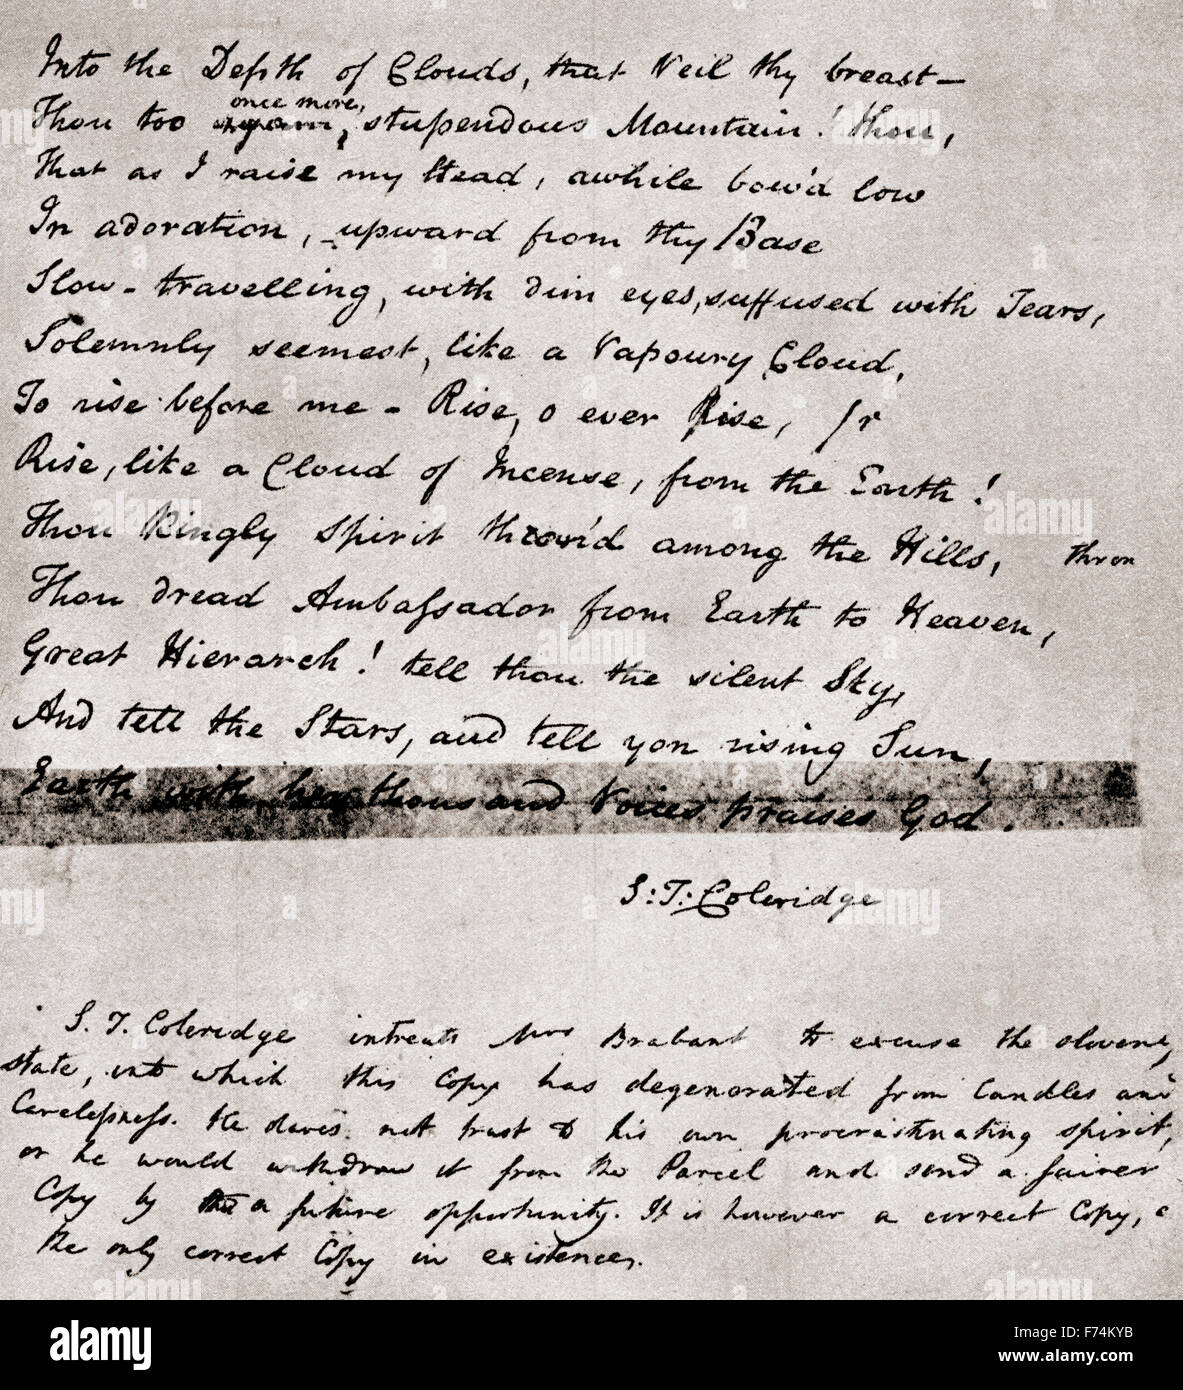 Into the Depth of Clouds, that Veil thy breast—
once more,
Thou too again, stupendous Mountain! thou,
That as I raise my Head, awhile bow'd low
In adoration, upward from thy Base
Slow-travelling, with dim eyes, suffused with Tears,
Solemnly seemest, like a Vapoury Cloud,
To rise before me - Rise, o ever Rise,
Rise, like a Cloud of Incense, from the Earth!
Thou Kingly Spirit thron'd among the Hills, thron
Thou dread Ambaſsador from Earth to Heaven,
Great Hierarch! tell thou the silent Sky,
And tell the Stars, and tell yon rising Sun,
Earth with her thousand Voices praises God.
S: T: Coleridge
S. T. Coleridge intreats Mrs Brabant to excuse the slovenly
state, into which this Copy has degenerated from Candles and
Careleſsneſs. He dares not trust to his own procrastinating spirit,
or he would withdraw it from the Parcel and send a fairer
Copy by a future opportunity. It is however a correct Copy,
the only correct Copy in existence.
alamy
alamy
Image ID: F74KYB
www.alamy.com